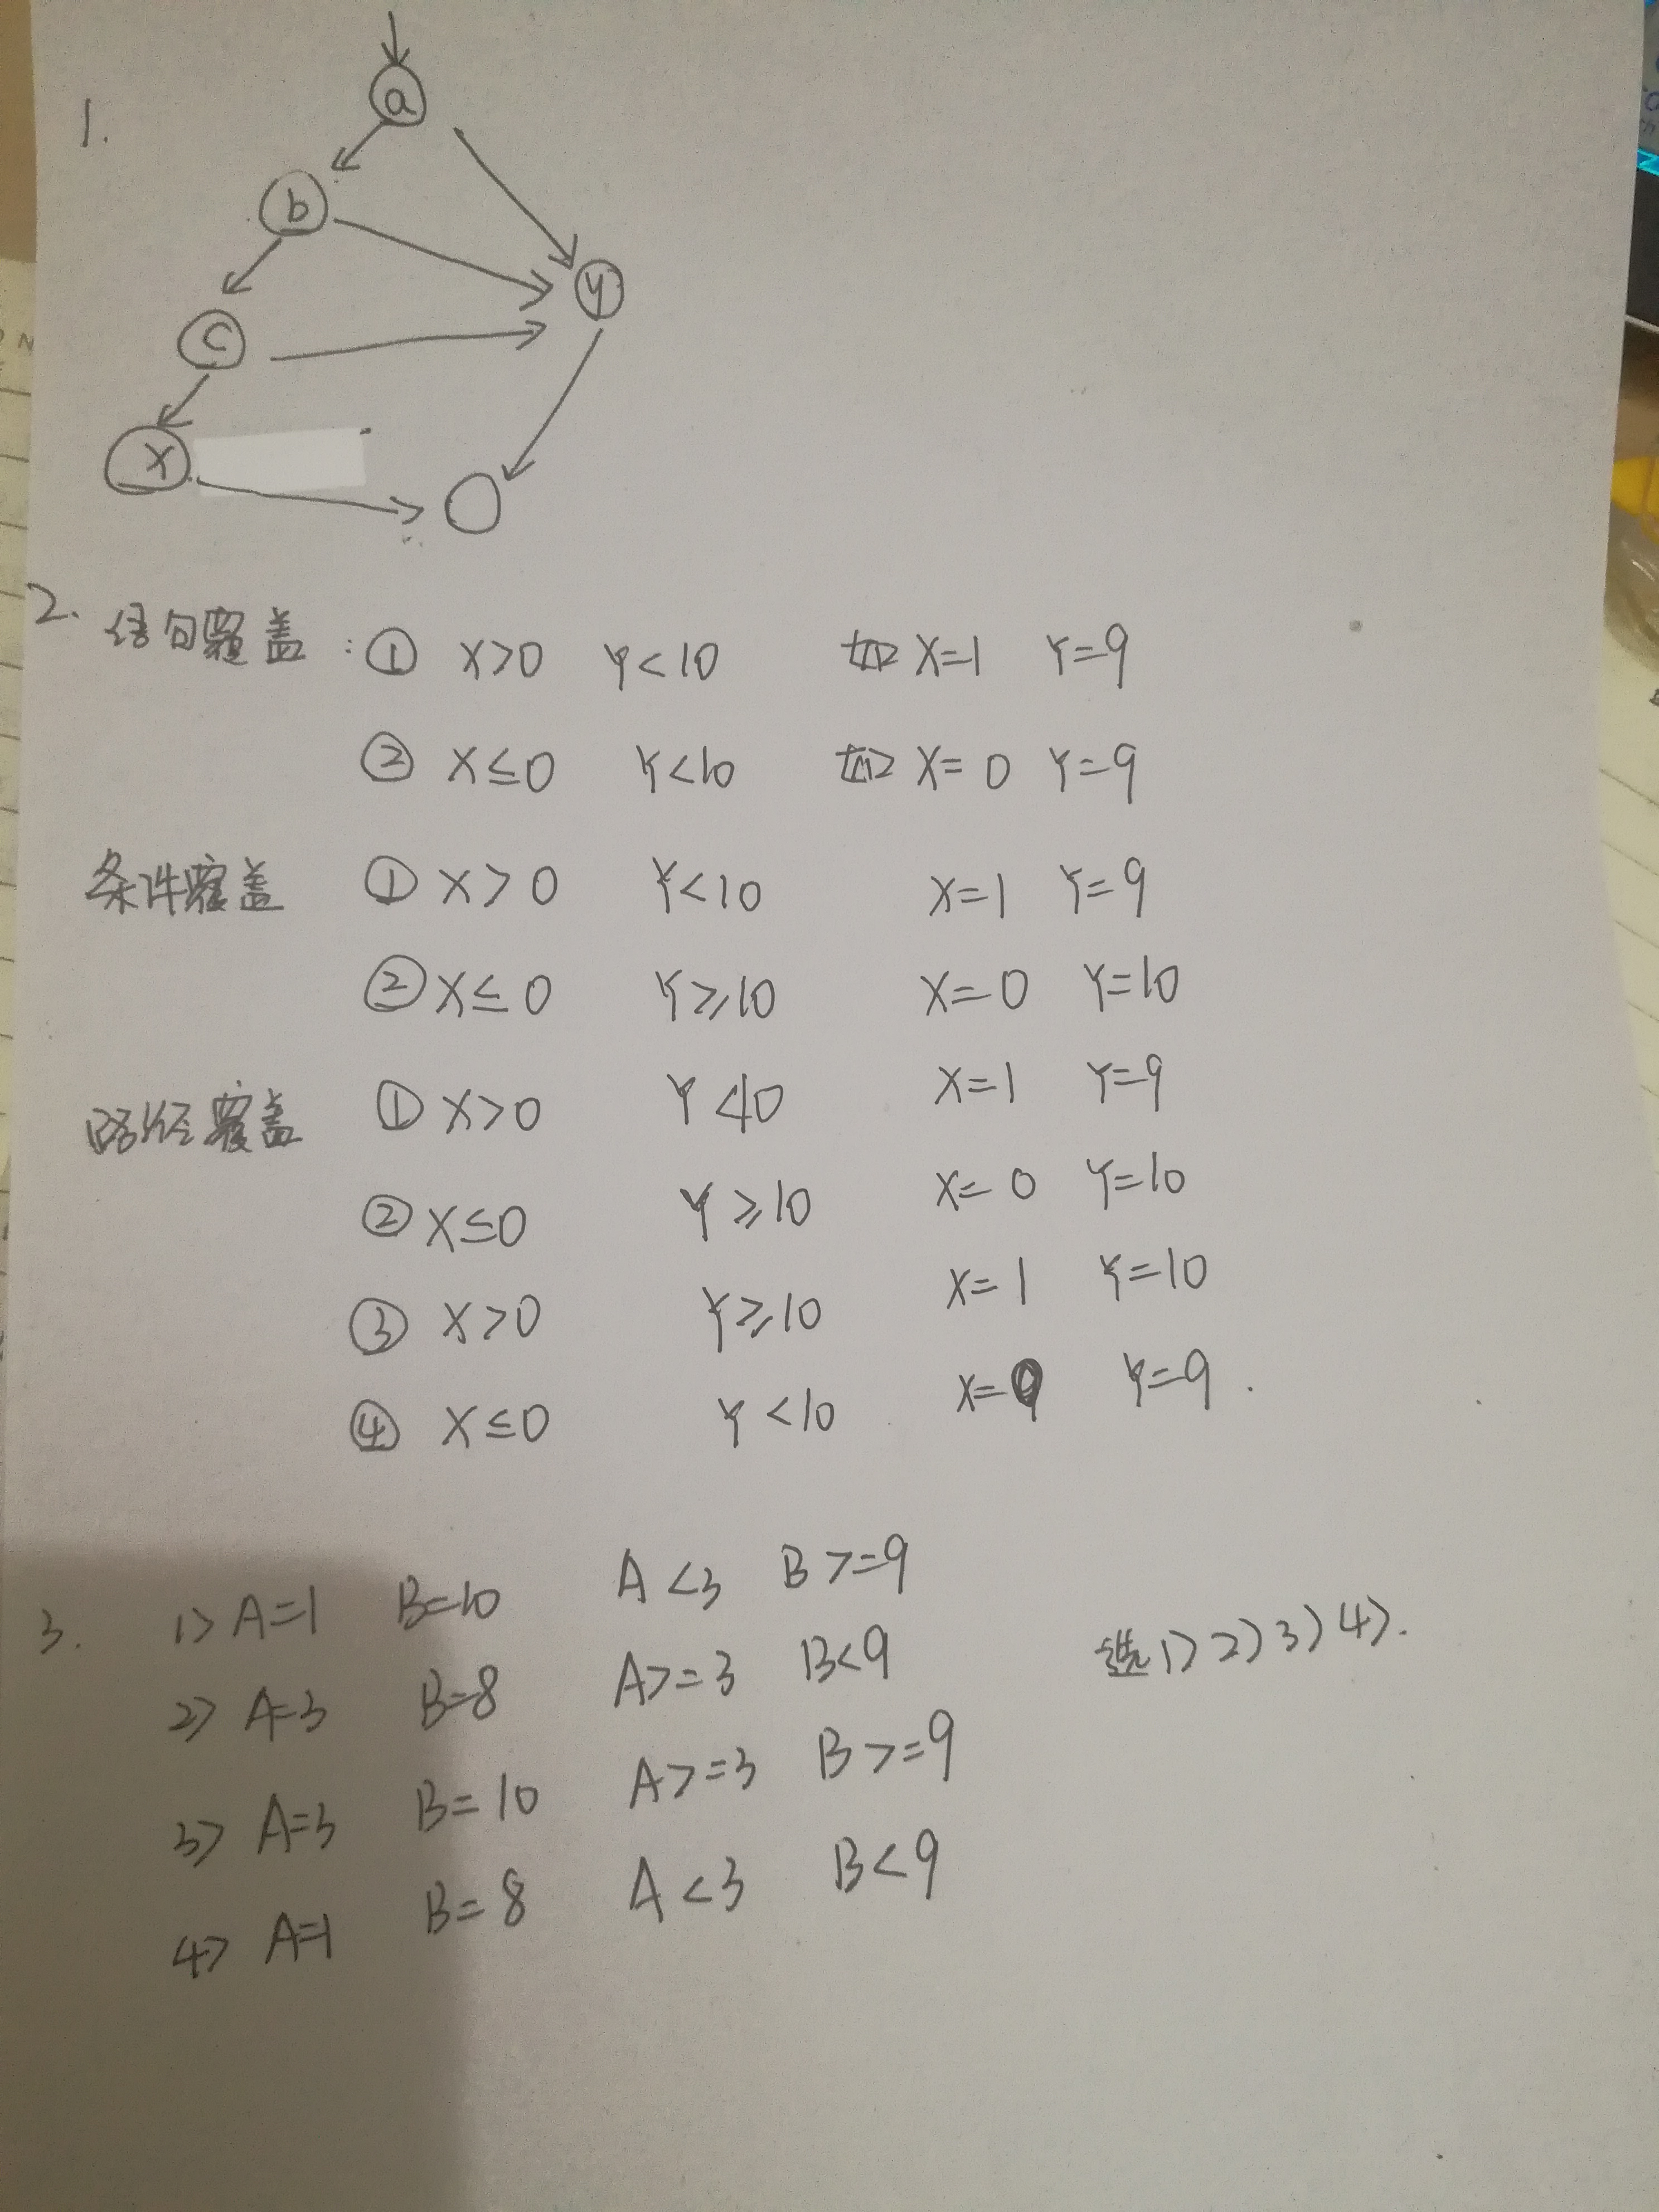 1.
a
b
y
c
x
2. 语句覆盖: ① X>0 Y<10 如 X=1 Y=9
② X≤0 Y<10 如 X=0 Y=9
条件覆盖 ① X>0 Y<10 X=1 Y=9
② X≤0 Y≥10 X=0 Y=10
路径覆盖 ① X>0 Y<10 X=1 Y=9
② X≤0 Y≥10 X=0 Y=10
③ X>0 Y≥10 X=1 Y=10
④ X≤0 Y<10 X= Y=9.
3. 1) A=1 B=10 A<3 B>=9
2) A=3 B=8 A>=3 B<9 选1)2)3)4).
3) A=3 B=10 A>=3 B>=9
4) A=1 B=8 A<3 B<9